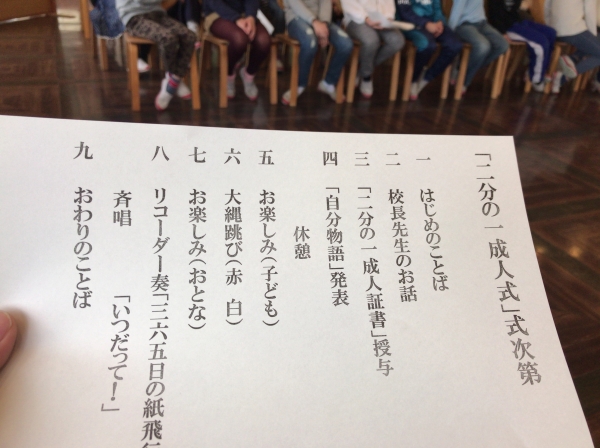 「二分の一成人式」式次第
一　はじめのことば
二　校長先生のお話
三　「二分の一成人証書」授与
四　「自分物語」発表
休憩
五　お楽しみ(子ども)
六　大縄跳び(赤　白)
七　お楽しみ(おとな)
八　リコーダー奏「三六五日の紙飛
斉唱　「いつだって！」
九　おわりのことば